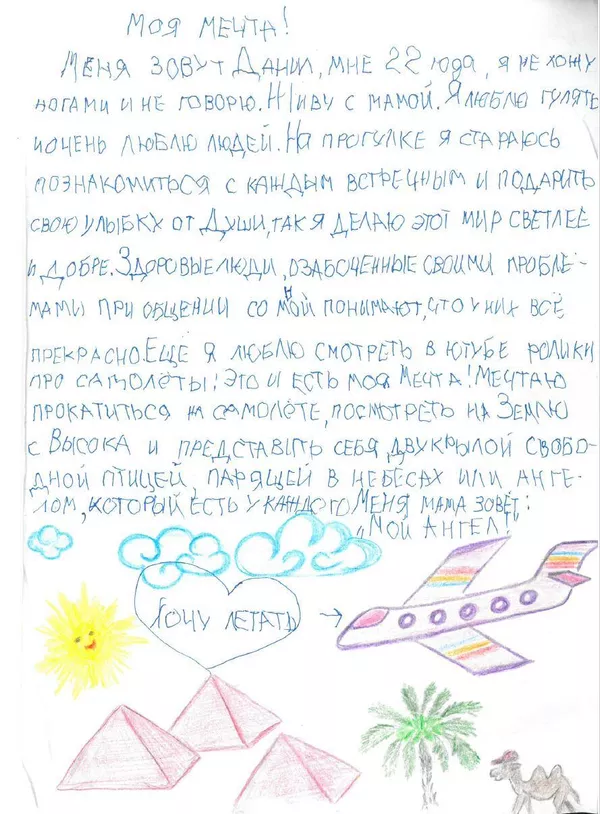 Моя мечта!
Меня зовут Данил, мне 22 года, я не хожу
ногами и не говорю. Живу с мамой. Я люблю гулять
иочень люблю людей. На прогулке я стараюсь
познакомиться с каждым встречным и подарить
свою улыбку от Души, так я делаю этот мир светлее
и добре. Здоровые люди, озабоченные своими пробле-
мами при общении со мной понимают, что у них всё
прекрасно. Ещё я люблю смотреть в ютубе ролики
про самолёты! Это и есть моя Мечта! Мечтаю
прокатиться на самолёте, посмотреть на Землю
с Высока и представить себя двукрылой свобо-
дной птицей, парящей в небесах или анге-
лом, который есть у каждого Меня мама зовёт:
„Мой Ангел!"
Хочу летать →